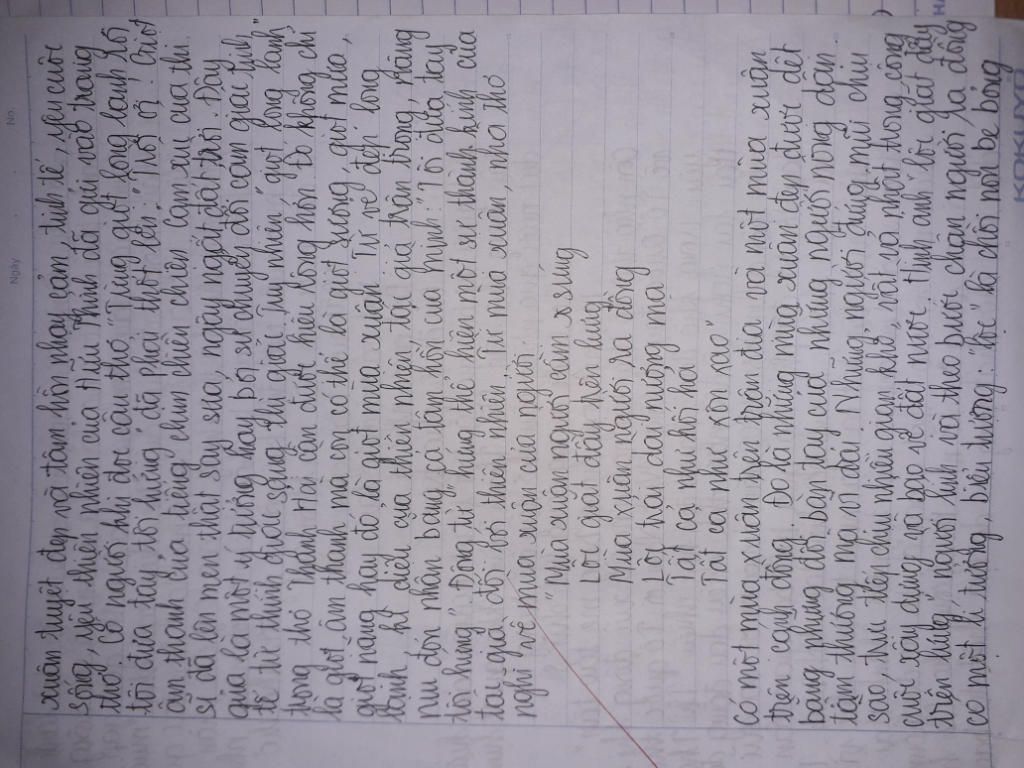 No
Ngày
xuân tuyệt đẹp và tâm hồn nhạy cảm, tinh tế, yêu cuộc
sống, yêu thiên nhiên của Hữu Thỉnh đã gửi vào trang
thơ. Có người khi đọc câu thơ "Từng giọt long lanh rơi
tôi đưa tay tôi hứng" đã phải thốt lên: "Trời ơi! Giọt
âm thanh của tiếng chim chiền chiện. Cảm xúc của thi
sĩ đã lên men thật say sưa, ngây ngất, đất trời. Đây
quả là một ý tưởng hay bởi sự chuyển đổi cảm giác tinh
tế từ thính giác sang thị giác. Tuy nhiên "giọt long lanh"
trong thơ Thanh Hải cần được hiểu rộng hơn. Đó không chỉ
là giọt âm thanh mà còn có thể là giọt sương, giọt mưa,
giọt nắng hay đó là giọt mùa xuân. Từ vẻ đẹp long
lanh kì diệu của thiên nhiên, tác giả trân trọng, nâng
niu đón nhận bằng cả tâm hồn của mình "Tôi đưa tay
tôi hứng". Động từ hứng thể hiện một sự thành kính của
tác giả đối với thiên nhiên. Từ mùa xuân, nhà thơ
nghĩ về mùa xuân của người.
"Mùa xuân người cầm súng
Lộc giắt đầy trên lưng
Mùa xuân người ra đồng
Lộc trải dài nương mạ
Tất cả như hối hả
Tất cả như xôn xao"
Có một mùa xuân bên trận địa và một mùa xuân
trên cánh đồng. Đó là những mùa xuân đẹp được dệt
bằng những đôi bàn tay của những người nông dân
tầm thường mà vĩ đại. Những người đứng mũi chịu
sào, trực tiếp chịu nhiều gian khổ, vất vả nhất trong công
cuộc xây dựng và bảo vệ đất nước. Hình ảnh "lộc giắt đầy
trên lưng" người lính và theo bước chân người ra đồng
có một lí tưởng, biểu tượng. "Lộc" là chồi non bé bỏng